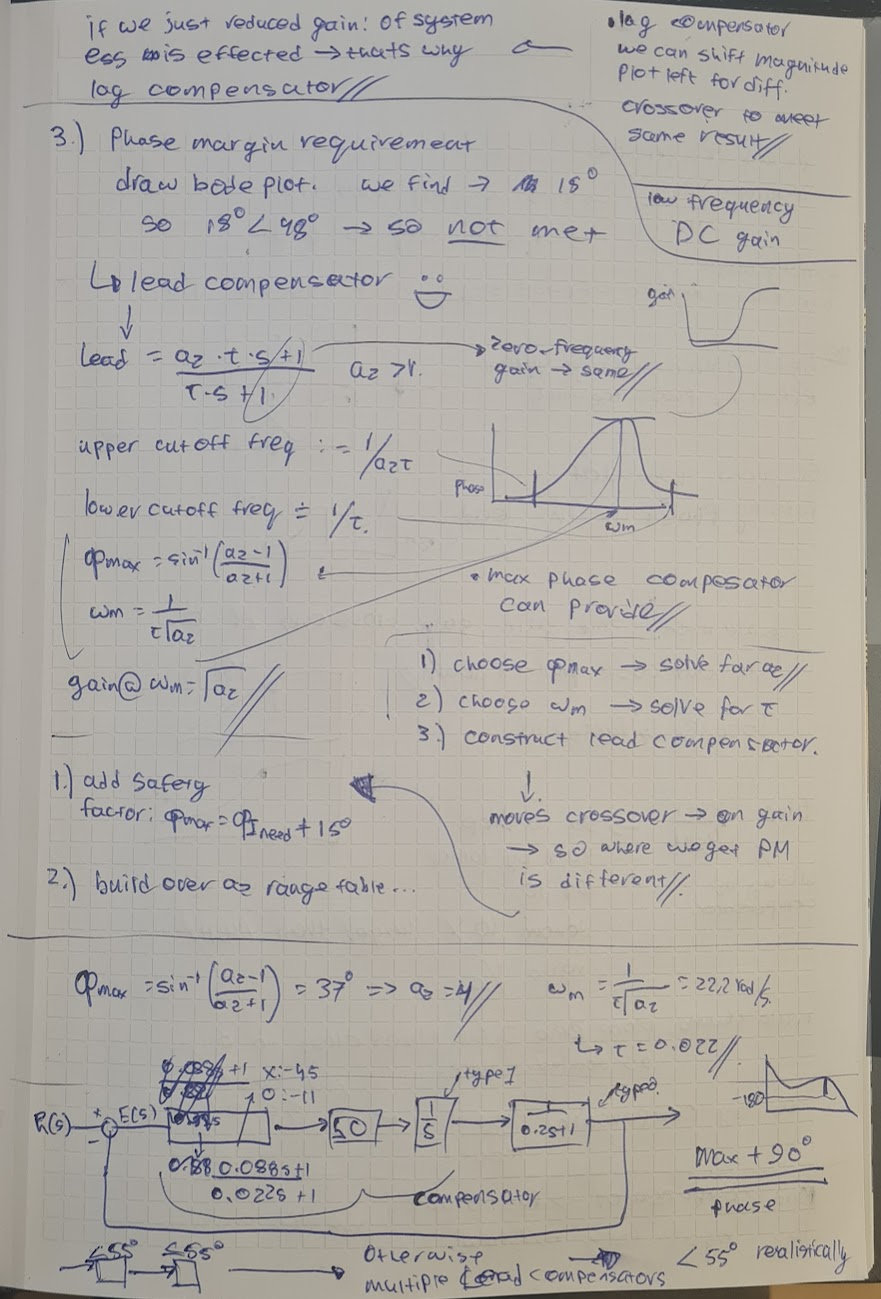 if we just reduced gain: of system
ess is effected → thats why ←
lag compensator //
• lag compensator
we can shift magnitude
plot left for diff.
crossover to meet
same result //
3.) Phase margin requirement
draw bode plot. we find → 18°
so 18° < 48° → so not met
low frequency
DC gain
↳ lead compensator
gain
lead = a2 · t · s + 1 / τ · s + 1 a2 > 1.
→ zero-frequency
gain → same //
upper cutoff freq := 1/a2τ
phase
ωm
lower cutoff freq ÷ 1/τ.
φmax = sin⁻¹ (a2-1 / a2+1)
• max phase composator
can provide //
ωm = 1 / τ√a2
gain@ ωm = √a2 //
1) choose φmax → solve for a2 //
2) choose ωm → solve for τ
3.) construct lead compensator.
↓
moves crossover → on gain
→ so where we get PM
is different //.
1.) add Safety
factor: φmax = φ need + 15°
2.) build over a2 range table...
φmax = sin⁻¹ (a2-1 / a2+1) = 37° => a2 = 4 //
ωm = 1 / τ√a2 = 22,2 rad/s.
↳ τ = 0.022 //
0.088s+1 x:-45
0:-11
type 1
type 0
-180
R(s) + - E(s) 50 1/s 1 / 0.2s+1
0.088s+1 / 0.022s+1
compensator
Max + 90°
phase
<55° <55° → Otherwise
multiple Lead compensators
→ <55° realistically